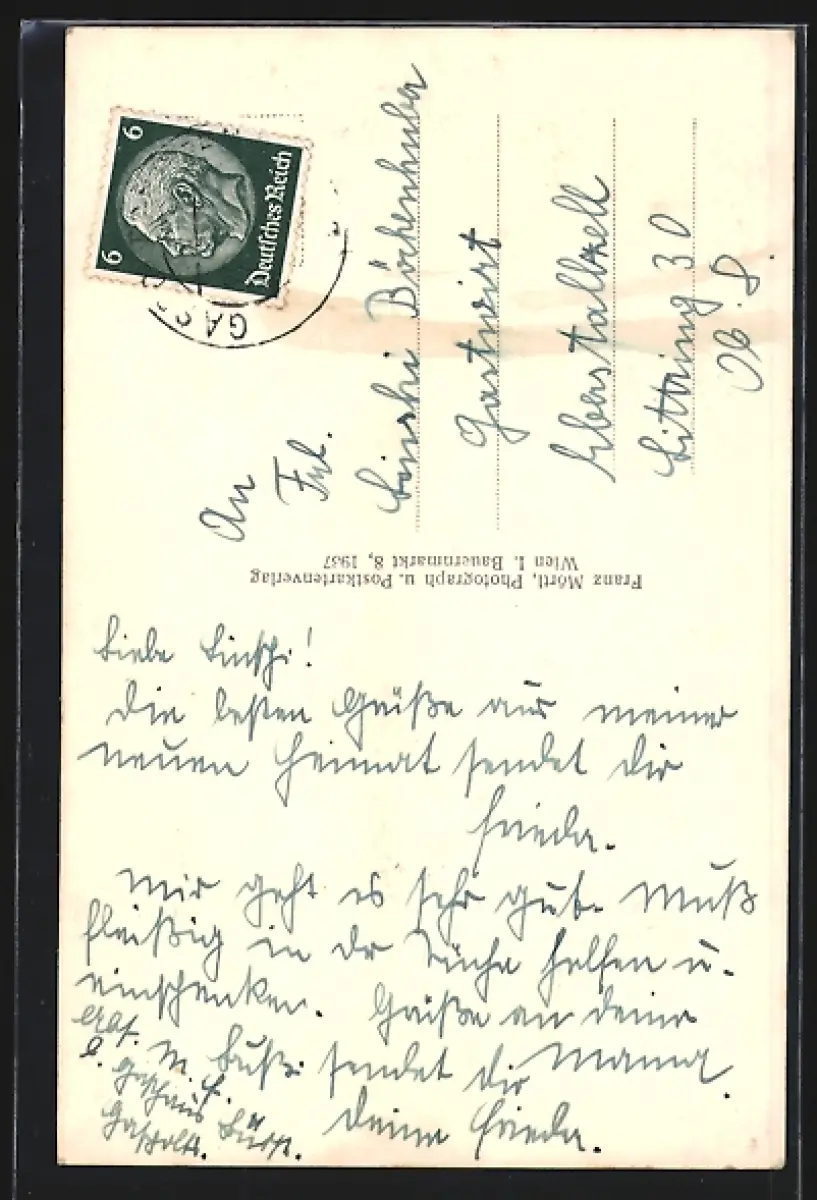 6 6
Deutsches Reich
GAS
An
Frl.
Gastwirt
Eberstallzell
Littring 30
Franz Mörtl, Photograph u. Postkartenverlag
Wien I. Bauernmarkt 8, 1937
Liebe Linschi!
Die besten Grüße aus meiner
neuen Heimat sendet dir
Frieda.
Mir geht es sehr gut. Muß
fleißig in der Küche helfen u.
einschenken. Grüße an deine
Mama.
sendet dir
deine Frieda.
Abs.
Gasthaus